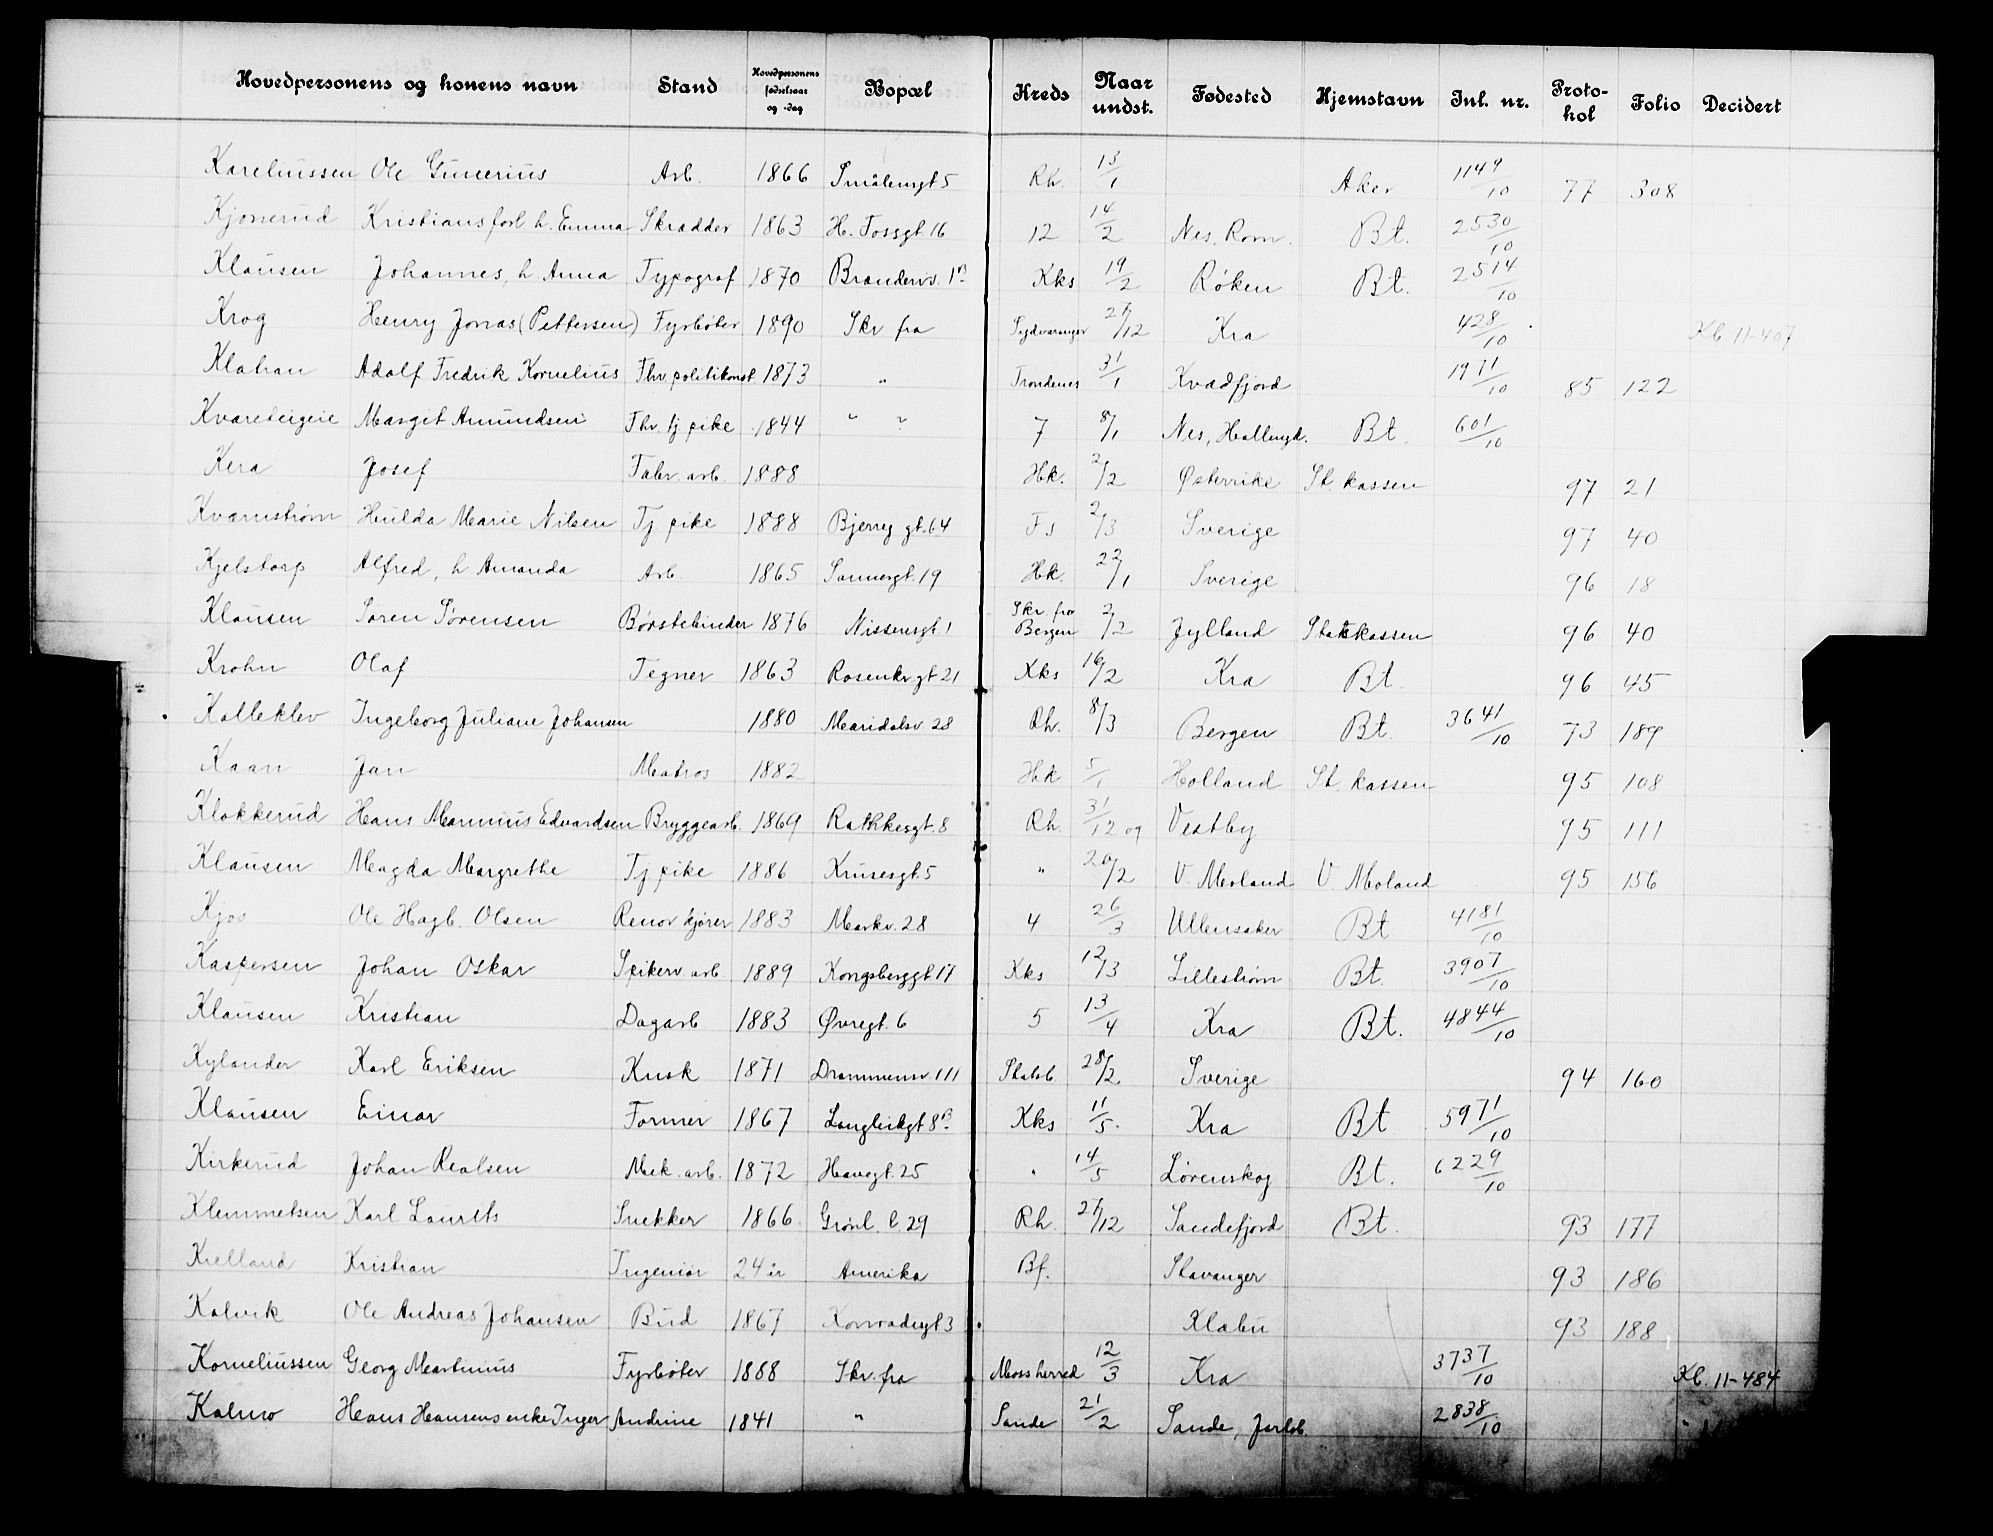 Hovedpersonens og konens navn Stand Hovedpersonens fødselsaar og -dag Bopæl Kreds Naar undst. Fødested Hjemstavn Inl. nr. Proto-kol Folio Decidert
Kareliussen Ole Gunerius Arb. 1866 Smålensgt 5 Rh. 13/1 Aker 1149/10 77 308
Kjonerud Kristian, forl. h. Emma Skrædder 1863 H. Fossgt. 16 12 14/2 Nes, Rom. Bt. 2530/10
Klausen Johannes, h. Anna Typograf 1870 Branderv. 1B Kks 19/2 Røken Bt. 2514/10
Krog Henry Jonas (Pettersen) Fyrbøter 1890 Skr fra Sydvaranger 27/12 Kra 428/10 Kb 11-407
Adolf Fredrik Kornelius Fhv. politikonst. 1873 " Trondenes 31/1 Kvædfjord 1971/10 85 122
Kvareteigeie Margit Amundsen Fhv. tj pike 1844 " " 7 8/1 Nes, Hallingd. Bt. 601/10
Kera Josef Fabr. arb. 1888 Hk. 2/2 Østerrike St. kassen 97 21
Kvarnstrøm Hulda Marie Nilsen Tj pike 1888 Bjerreg gt. 64 Fs 2/3 Sverige 97 40
Kjelstorp Alfred, h Amanda Arb 1865 Sannergt. 19 Hk. 22/1 Sverige 96 18
Klausen Søren Sørensen Børstebinder 1876 Nissensgt 1 Skr. fra Bergen 2/2 Jylland Statskassen 96 40
Krohn Olaf Tegner 1863 Rosenkr gt 21 Kks 16/2 Kra Bt. 96 45
Kalleklev Ingeborg Juliane Johansen 1880 Maridalsv 28 Rh. 8/3 Bergen Bt. 3641/10 73 189
Kaan Jan Matros 1882 Hk 5/1 Holland St. kassen 95 108
Klokkerud Hans Marinius Edvardsen Bryggearb. 1869 Rathkesgt. 8 Rh. 31/12 og Vestby 95 111
Klausen Magda Margrethe Tj. pike 1886 Krusesgt 5 " 20/2 V. Moland V. Moland 95 156
Kjos Ole Hagb. Olsen Renov kjører 1883 Markv. 28 4 26/3 Ullensaker Bt 4181/10
Kaspersen Johan Oskar Spikerv arb 1889 Kongsberggt 17 Kks 12/3 Lillestrøm Bt. 3907/10
Klausen Kristian Dagarb 1883 Øvregt. 6 5 13/4 Kra Bt. 4844/10
Kylander Karl Eriksen Kusk 1871 Drammensv. 111 Skøieb. 28/2 Sverige 94 160
Klausen Einar Former 1867 Langleikgt 8B Kks 11/5 Kra Bt 5971/10
Kirkerud Johan Realsen Mek. arb. 1872 Havegt. 25 " 14/5 Lørenskog Bt. 6229/10
Klemmetsen Karl Laurits Snekker 1866 Grønl. l. 29 Rh. 27/12 Sandefjord Bt. 93 177
Kielland Kristian Ingeniør 24 år Amerika Bf. Stavanger 93 186
Kalvik Ole Andreas Johansen Bud 1867 Konradsgt 3 Klæbu 93 188
Korneliussen Georg Martinius Fyrbøter 1888 Skr. fra Moss herred 12/3 Kra 3737/10 Kb. 11-484
Kalmo Hans Hansens enke Inger Andrine 1841 " Sande 21/2 Sande, Jarlsb. 2838/10 "